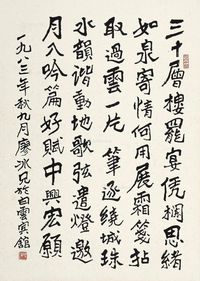 三十層樓罷宴凭欄思緒
如泉寄情何用展霜箋拈
取過雲一片 筆逐繞城珠
水韻諧動地歌弦遣燈邀
月入吟篇好賦中興宏願
一九八三年秋九月廖冰兄於白雲賓館